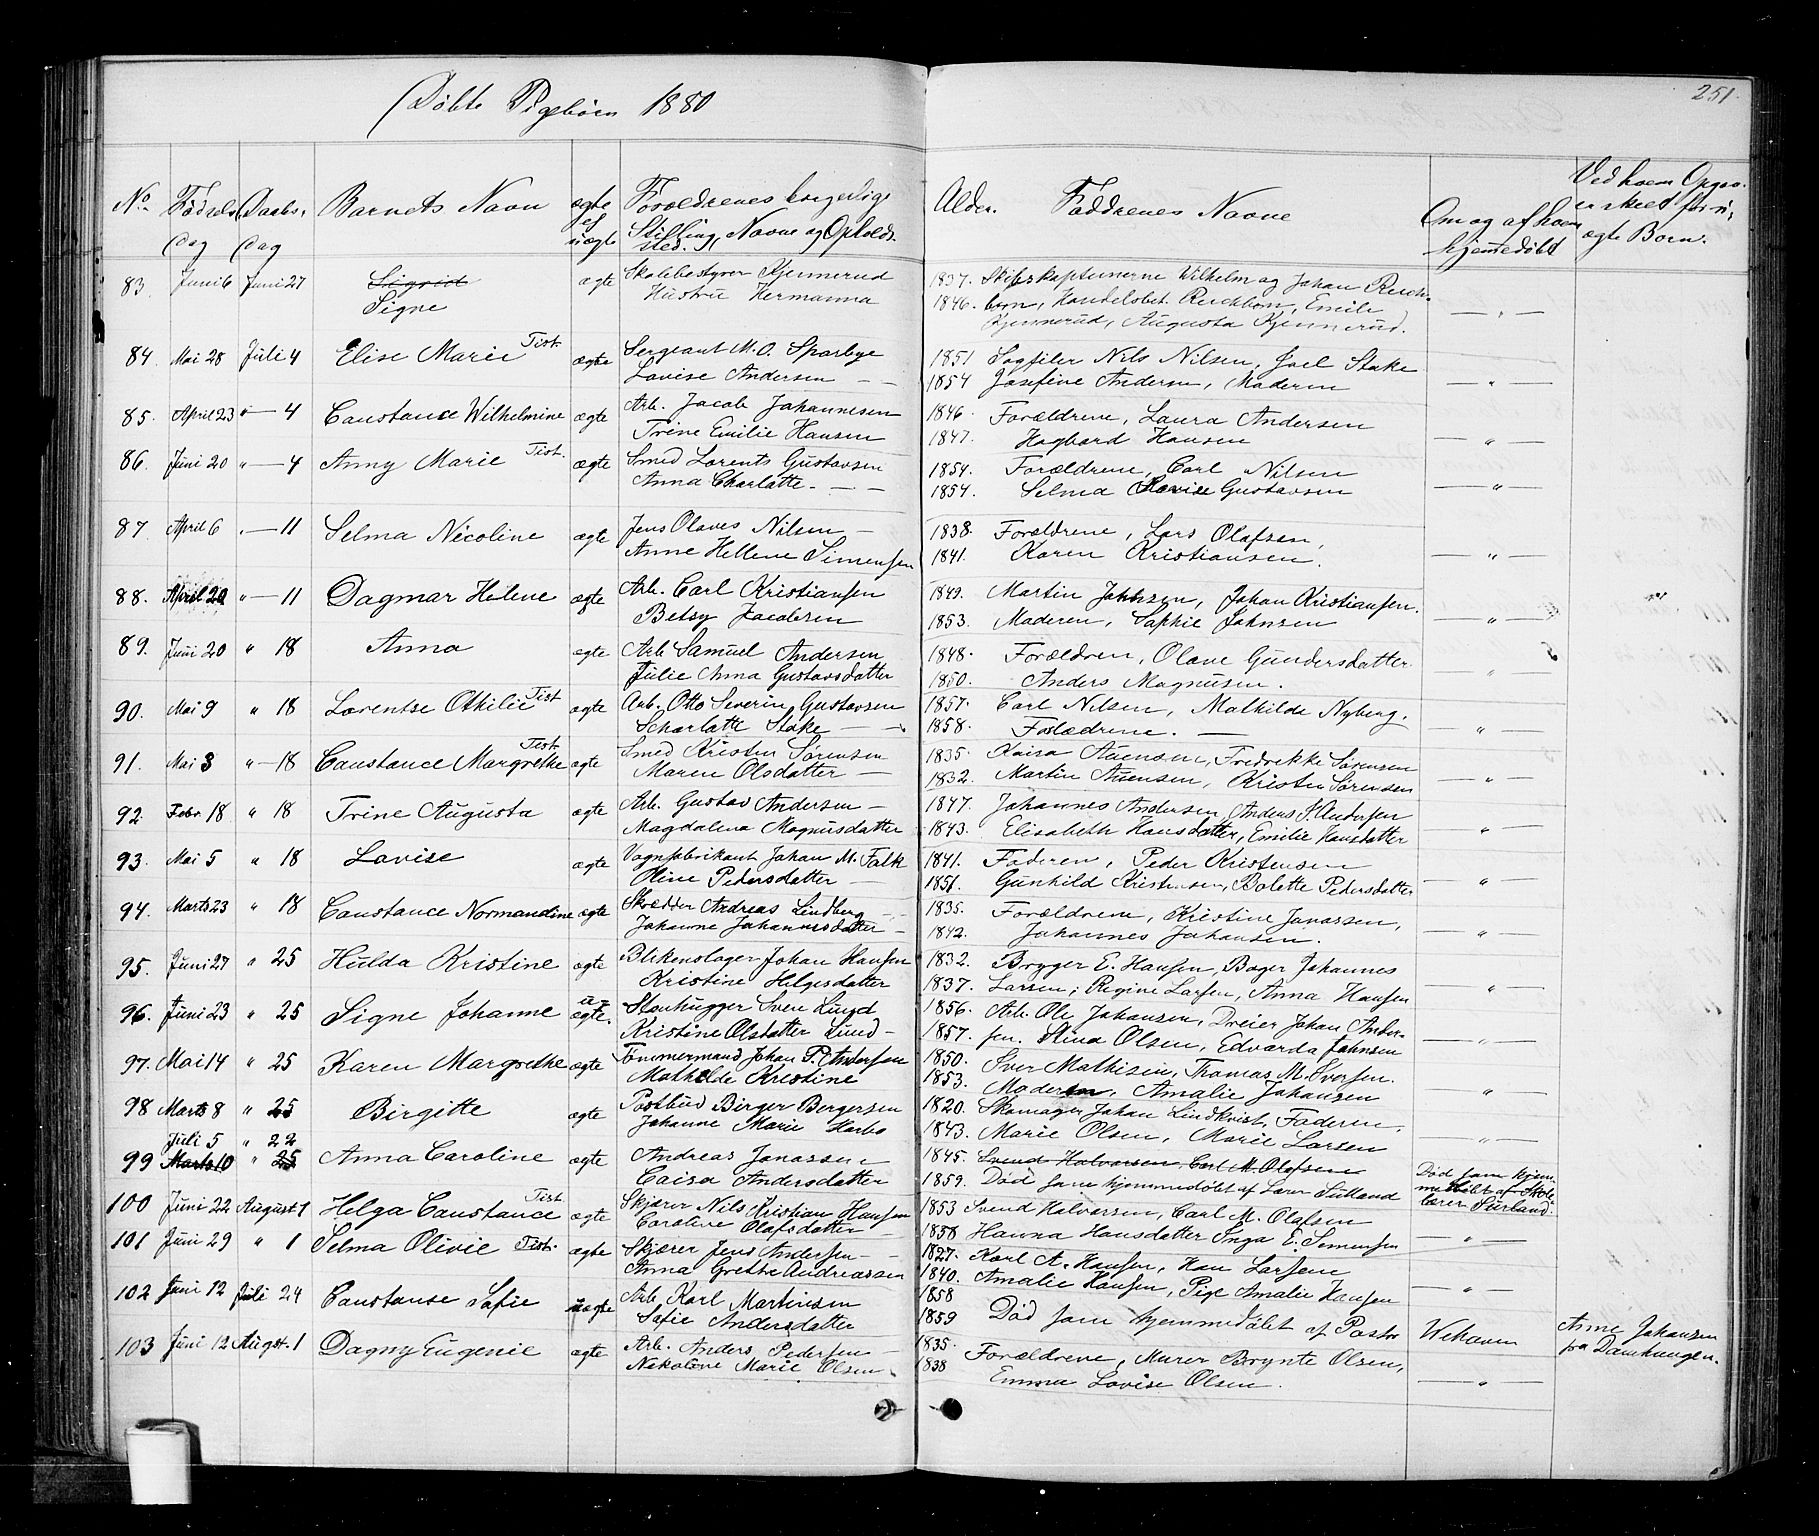 Døbte Pigebørn 1880
251.
No. Fødsels Dag Daabs Dag Barnets Navn ægte el uægte Forældrenes borgerlige Stilling, Navne og Opholdssted. Alder. Faddrenes Navne Om og af hvem hjemmedøbt Ved hvem Opgav. er skeet for uægte Børn.
83. Juni 6 Juni 27 Sigrid ægte Skolebestyrer Kjennerud 1837. Skibskapteinerne Wilhelm og Johan Reich-
Signe Hustru Hermanna 1846. born, Handelsbet. Reichborn, Emilie
Kjennerud, Augusta Kjennerud. — " —
84. Mai 28 Juli 4 Elise Marie Tist. ægte Sergeant M. O. Sparbye 1851 Sagfiler Nils Nilsen, Joel Stake
Lovise Andersen — — 1854 Josefine Andersen, Moderen — " —
85. April 23 " — 4 Constance Wilhelmine ægte Arb. Jacob Johannesen 1846. Forældrene, Laura Andersen
Trine Emilie Hansen 1847. Hagbard Hansen — " —
86. Juni 20 " — 4 Anny Marie Tist. ægte Smed Lorents Gustavsen 1854. Forældrene, Carl Nilsen
Anna Charlotte — — 1854. Selma Lovise Gustavsen — " —
87. April 6 " — 11 Selma Nicoline ægte Jens Olaves Nilsen — 1838. Forældrene, Lars Olafsen,
Anne Hellene Simensen 1841. Karen Kristiansen. — " —
88. April 20 " — 11 Dagmar Helene ægte Arb. Carl Kristiansen 1849. Martin Johnsen, Johan Kristiansen.
Betsy Jacobsen 1853. Moderen, Sophie Johnsen — " —
89. Juni 20 " 18 Anna ægte Arb Samuel Andersen 1848. Forældren, Olave Gundersdatter
Julie Anna Gustavsdatter 1850. Anders Magnusen. — " —
90. Mai 9 " 18 Lorentse Othilie Tist ægte Arb. Otto Severin Gustavsen 1857. Carl Nilsen, Mathilde Nyberg.
Scharlotte Stake — — 1858. Forældrene. — — " —
91. Mai 3 " — 18 Constance Margrethe Tist. ægte Smed Kristen Sørensen 1835. Kaisa Auensen, Fredrekke Sørensen
Maren Olsdatter — 1832. Martin Auensen, Kristen Sørensen — " —
92. Febr. 18 " 18 Trine Augusta ægte Arb. Gustav Andersen — 1847. Johannes Andersen, Anders P. Andersen
Magdalena Magnusdatter 1843. Elisabeth Hansdatter, Emilie Hansdatter — " —
93. Mai 5 " 18 Lovise ægte Vognfabrikant Johan M. Falk 1841. Faderen, Peder Kristensen
Oline Pedersdatter — 1851. Gunhild Kristensen, Bolette Pedersdatter — " —
94. Marts 23 " 18 Constance Normandine ægte Skrædder Andreas Lindberg — 1835. Forældrene, Kristine Jonassen,
Johanne Johannesdatter — 1842. Johannes Johansen. — " —
95. Juni 27 " 25 Hulda Kristine ægte Blikenslager Johan Hansen 1832. Brygger E. Hansen, Bager Johannes
Kristine Helgesdatter 1837. Larsen, Regine Larsen, Anna Hansen — " —
96. Juni 23 " 25 Signe Johanne ægte. Stenhugger Sven Lund 1856. Arb. Ole Johansen, Dreier Johan Ander-
Kristine Olsdatter Lund — 1857. sen. Stina Olsen, Edvarda Johnsen — " —
97. Mai 14 " 25 Karen Margrethe ægte Tømmermand Johan P. Andersen 1850. Sver Mathisen, Thomas M. Sversen.
Mathelde Kristine 1853. Moderen, Amalie Johansen — " —
98 Marts 8 " 25 Birgitte ægte Postbud Birger Bergersen 1820. Skomager Johan Lindkvist, Faderen,
Johanne Marie Harbo 1843. Marie Olsen, Marie Larsen — " —
Juli 5 " 22
99 Marts 10 " 25 Anna Caroline ægte Andreas Jonassen 1845. Svend Halvorsen, Carl M. Olafsen Død som hjem-
Caisa Andersdatter 1859. Død som hjemmedøbt af Lærer Sulland medøbt af Skole
100 Juni 22 August 1 Helga Constance Tist. ægte Skjærer Nils Kristian Hansen 1853 Svend Halvorsen, Carl M. Olafsen lærer Surland.
Caroline Olafsdatter — 1858 Hanna Hansdatter Inga E. Simensen — " —
101 Juni 29 " 1 Selma Olivie Tist. ægte Skjærer Jens Andersen — 1827. Karl A. Hansen, Han Larsene
Anna Grethe Andreassen 1840. Amalie Hansen, Pige Amalie Hansen — " —
102 Juni 12 Juli 24 Constanse Sofie uægte Arb Karl Martinsen 1858 Død som hjemmedøbt af Pastor Wehaven Anne Johansen
Sofie Andersdatter 1859 fra Damhaugen.
103 Juni 12 August. 1 Dagny Eugenie ægte Arb. Anders Pedersen — 1835. Forældrene, Murer Brynte Olsen,
Nikoline Marie Olsen 1838 Emma Lovise Olsen. — " —